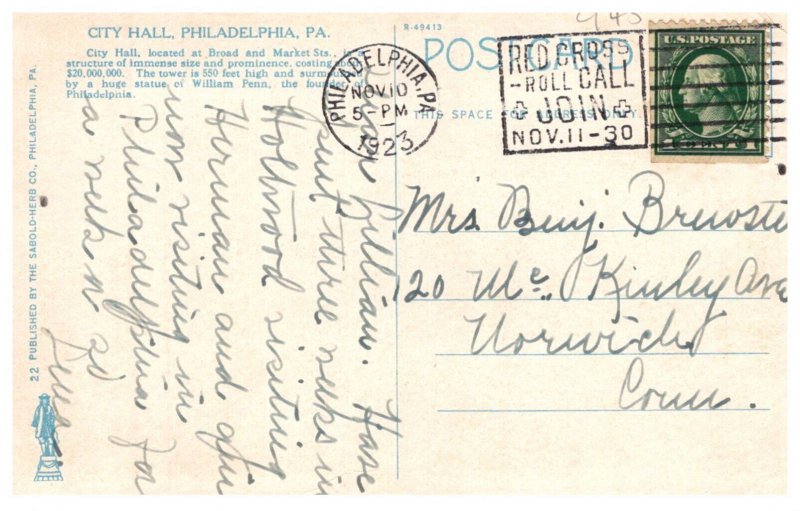 CITY HALL, PHILADELPHIA, PA.
City Hall, located at Broad and Market Sts., is a
structure of immense size and prominence, costing
$20,000,000. The tower is 550 feet high and
by a huge statue of William Penn, the founder of
Philadelphia.
R-49413
POST CARD
THIS SPACE FOR ADDRESS ONLY.
PHILADELPHIA, PA.
NOV 10
5-PM
1923
RED CROSS
-ROLL CALL
+ JOIN +
NOV. 11-30
U.S. POSTAGE
Mrs. Benj. Brewste
120 Mc. Kinley Ave
Norwich
Conn.
Dear Lillian. Have
spent three weeks in
Holbrood visiting
Herman and
now visiting in
Philadelphia for
a week or
22 PUBLISHED BY THE SABOLD-HERB CO., PHILADELPHIA, PA.